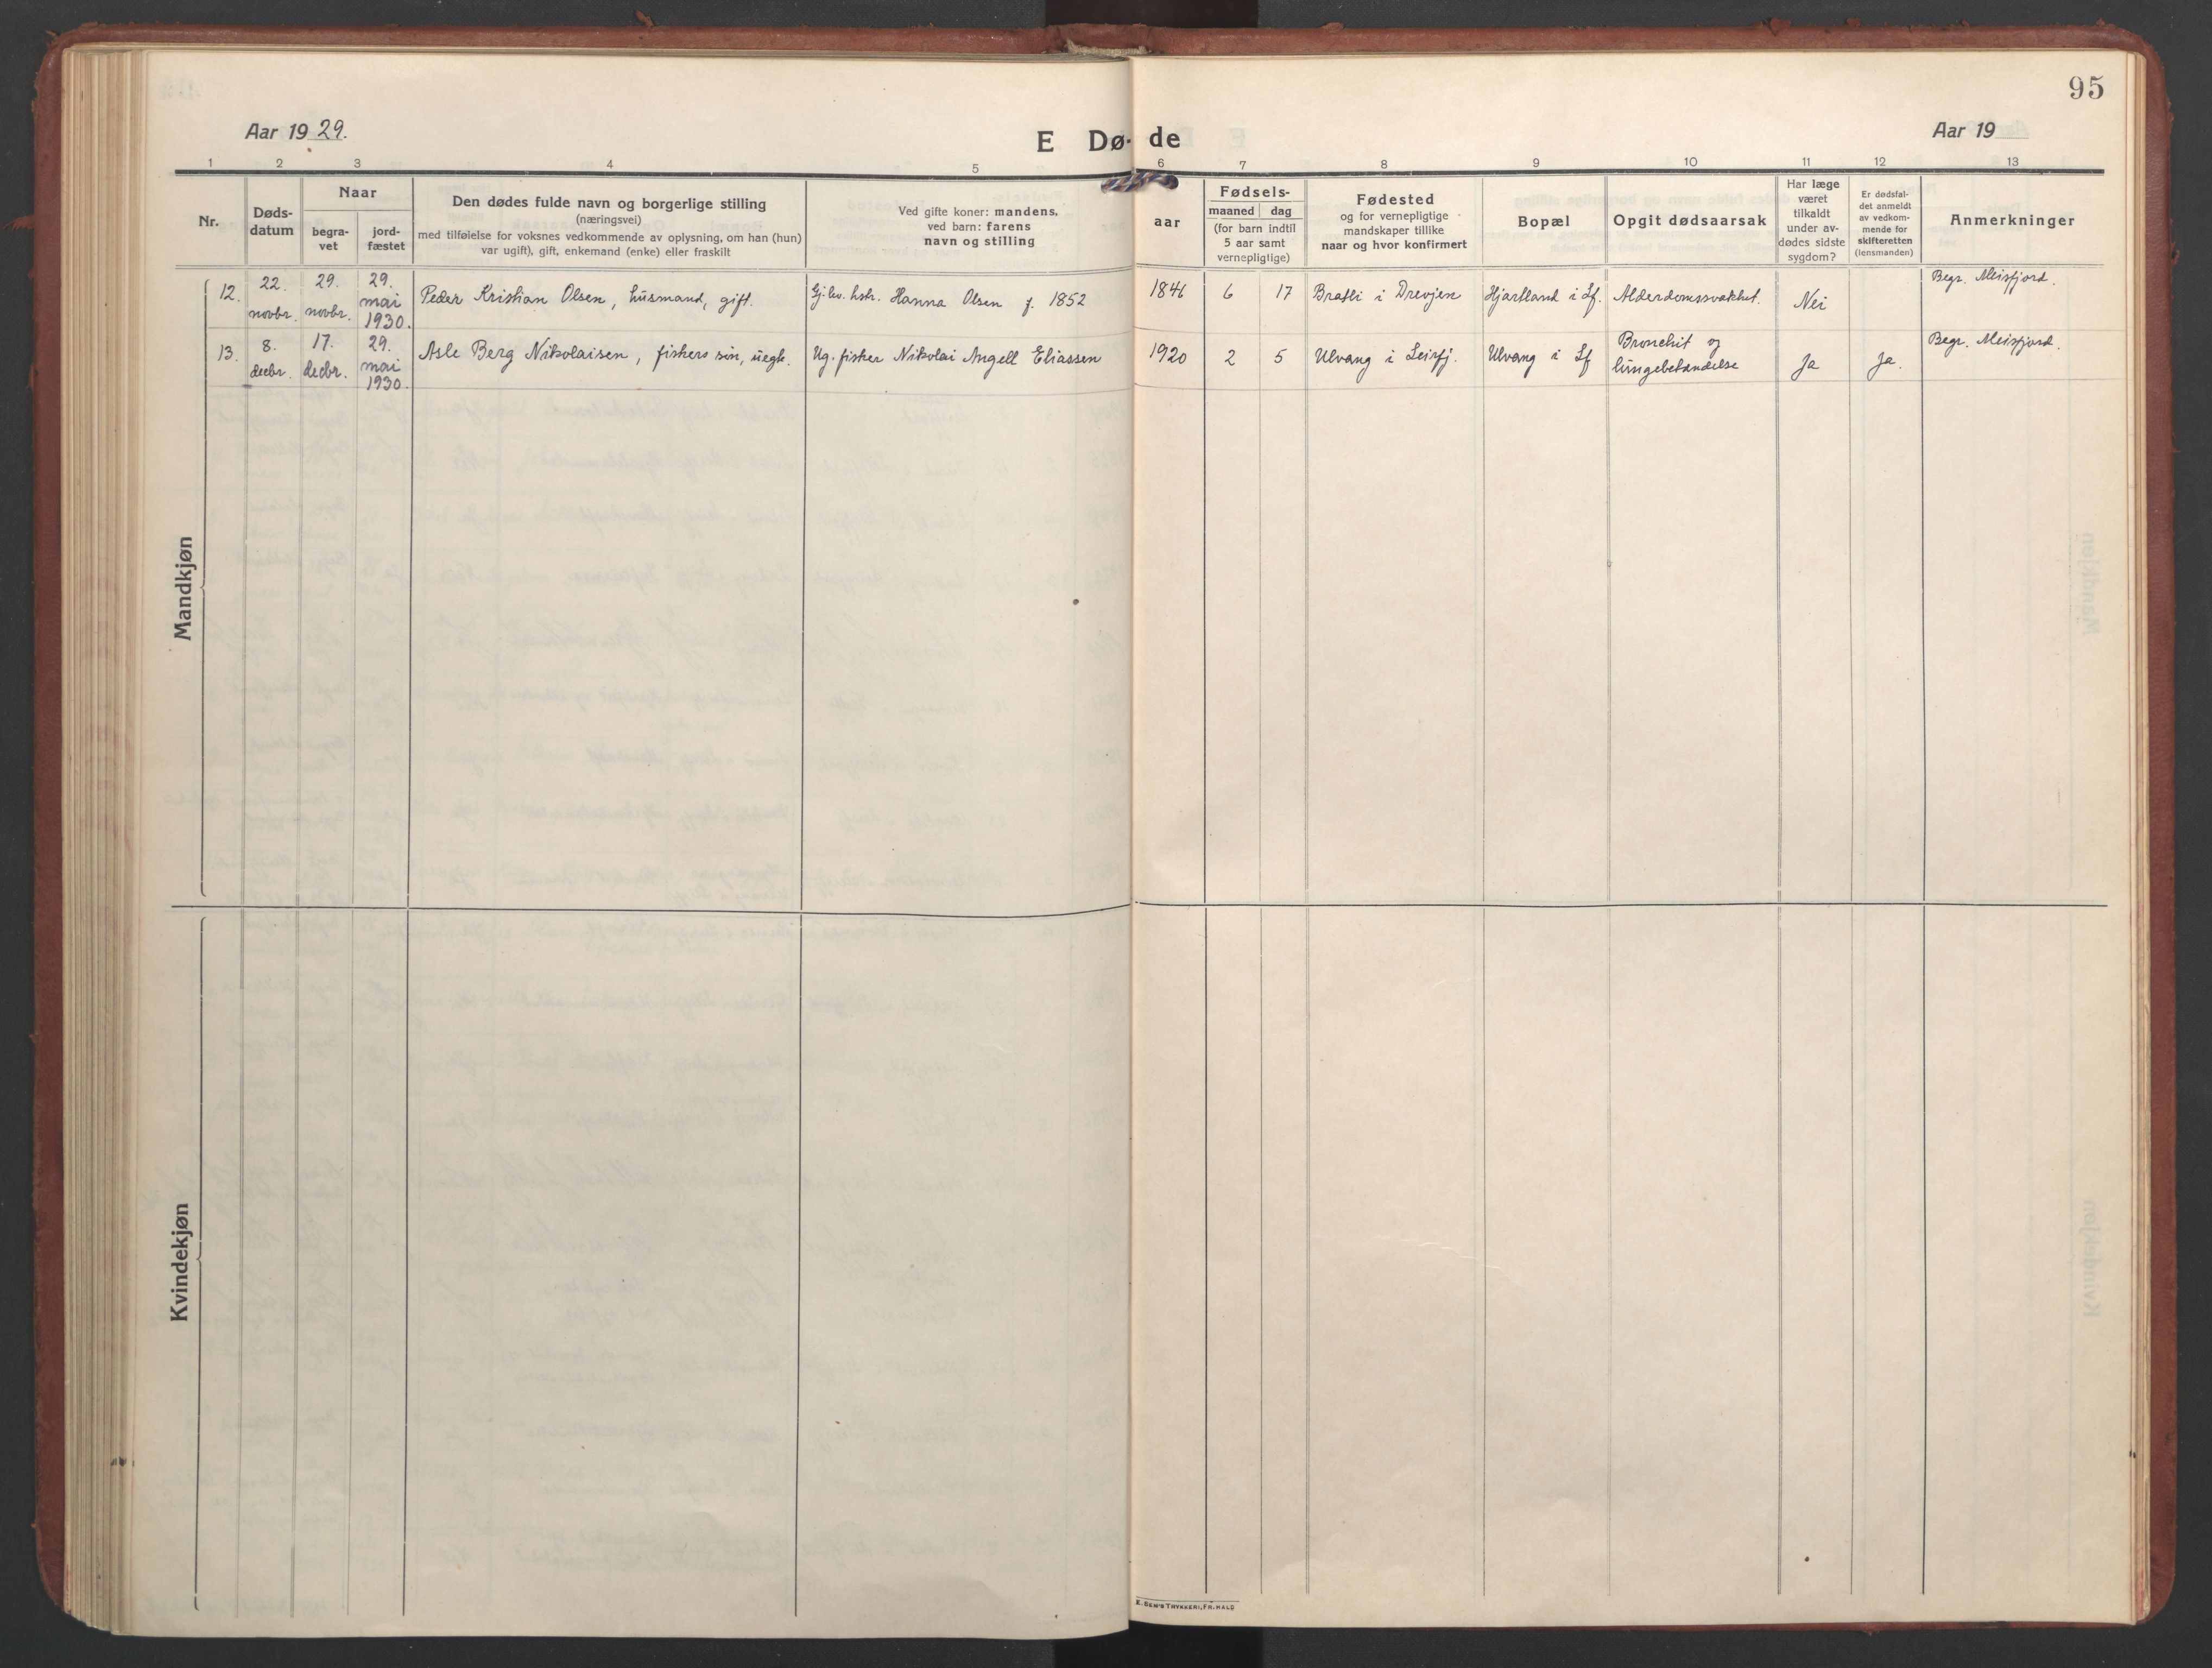 95
Aar 19 29.
E Dø- de
Aar 19
1 2 3 4 5 6 7 8 9 10 11 12 13
Nr.
Døds-
datum
Naar
begra-
vet
jord-
fæstet
Den dødes fulde navn og borgerlige stilling
(næringsvei)
med tilføielse for voksnes vedkommende av oplysning, om han (hun)
var ugift), gift, enkemand (enke) eller fraskilt
Ved gifte koner: mandens,
ved barn: farens
navn og stilling
aar
Fødsels-
maaned dag
(for barn indtil
5 aar samt
vernepligtige)
Fødested
og for vernepligtige
mandskaper tillike
naar og hvor konfirmert
Bopæl
Opgit dødsaarsak
Har læge
været
tilkaldt
under av-
dødes sidste
sygdom?
Er dødsfal-
det anmeldt
av vedkom-
mende for
skifteretten
(lensmanden)
Anmerkninger
Mandkjøn
12.
22.
novbr.
29.
novbr.
29.
mai
1930.
Peder Kristian Olsen, husmand, gift.
Gj. lev. hstr. Hanna Olsen f. 1852
1846
6
17
Bratli i Drevjen
Hjartland i Lf.
Alderdomssvakhet.
Nei
Begr. Meisfjord.
13.
8.
decbr.
17.
decbr.
29.
mai
1930.
Asle Berg Nikolaisen, fiskers søn, uegte.
Ug. fisker Nikolai Angell Eliassen
1920
2
5
Ulvang i Leirfj.
Ulvang i Lf
Bronchit og
lungebetændelse
Ja
Ja.
Begr. Meisfjord.
Kvindekjøn
E. SEM'S TRYKKERI, FR. HALD